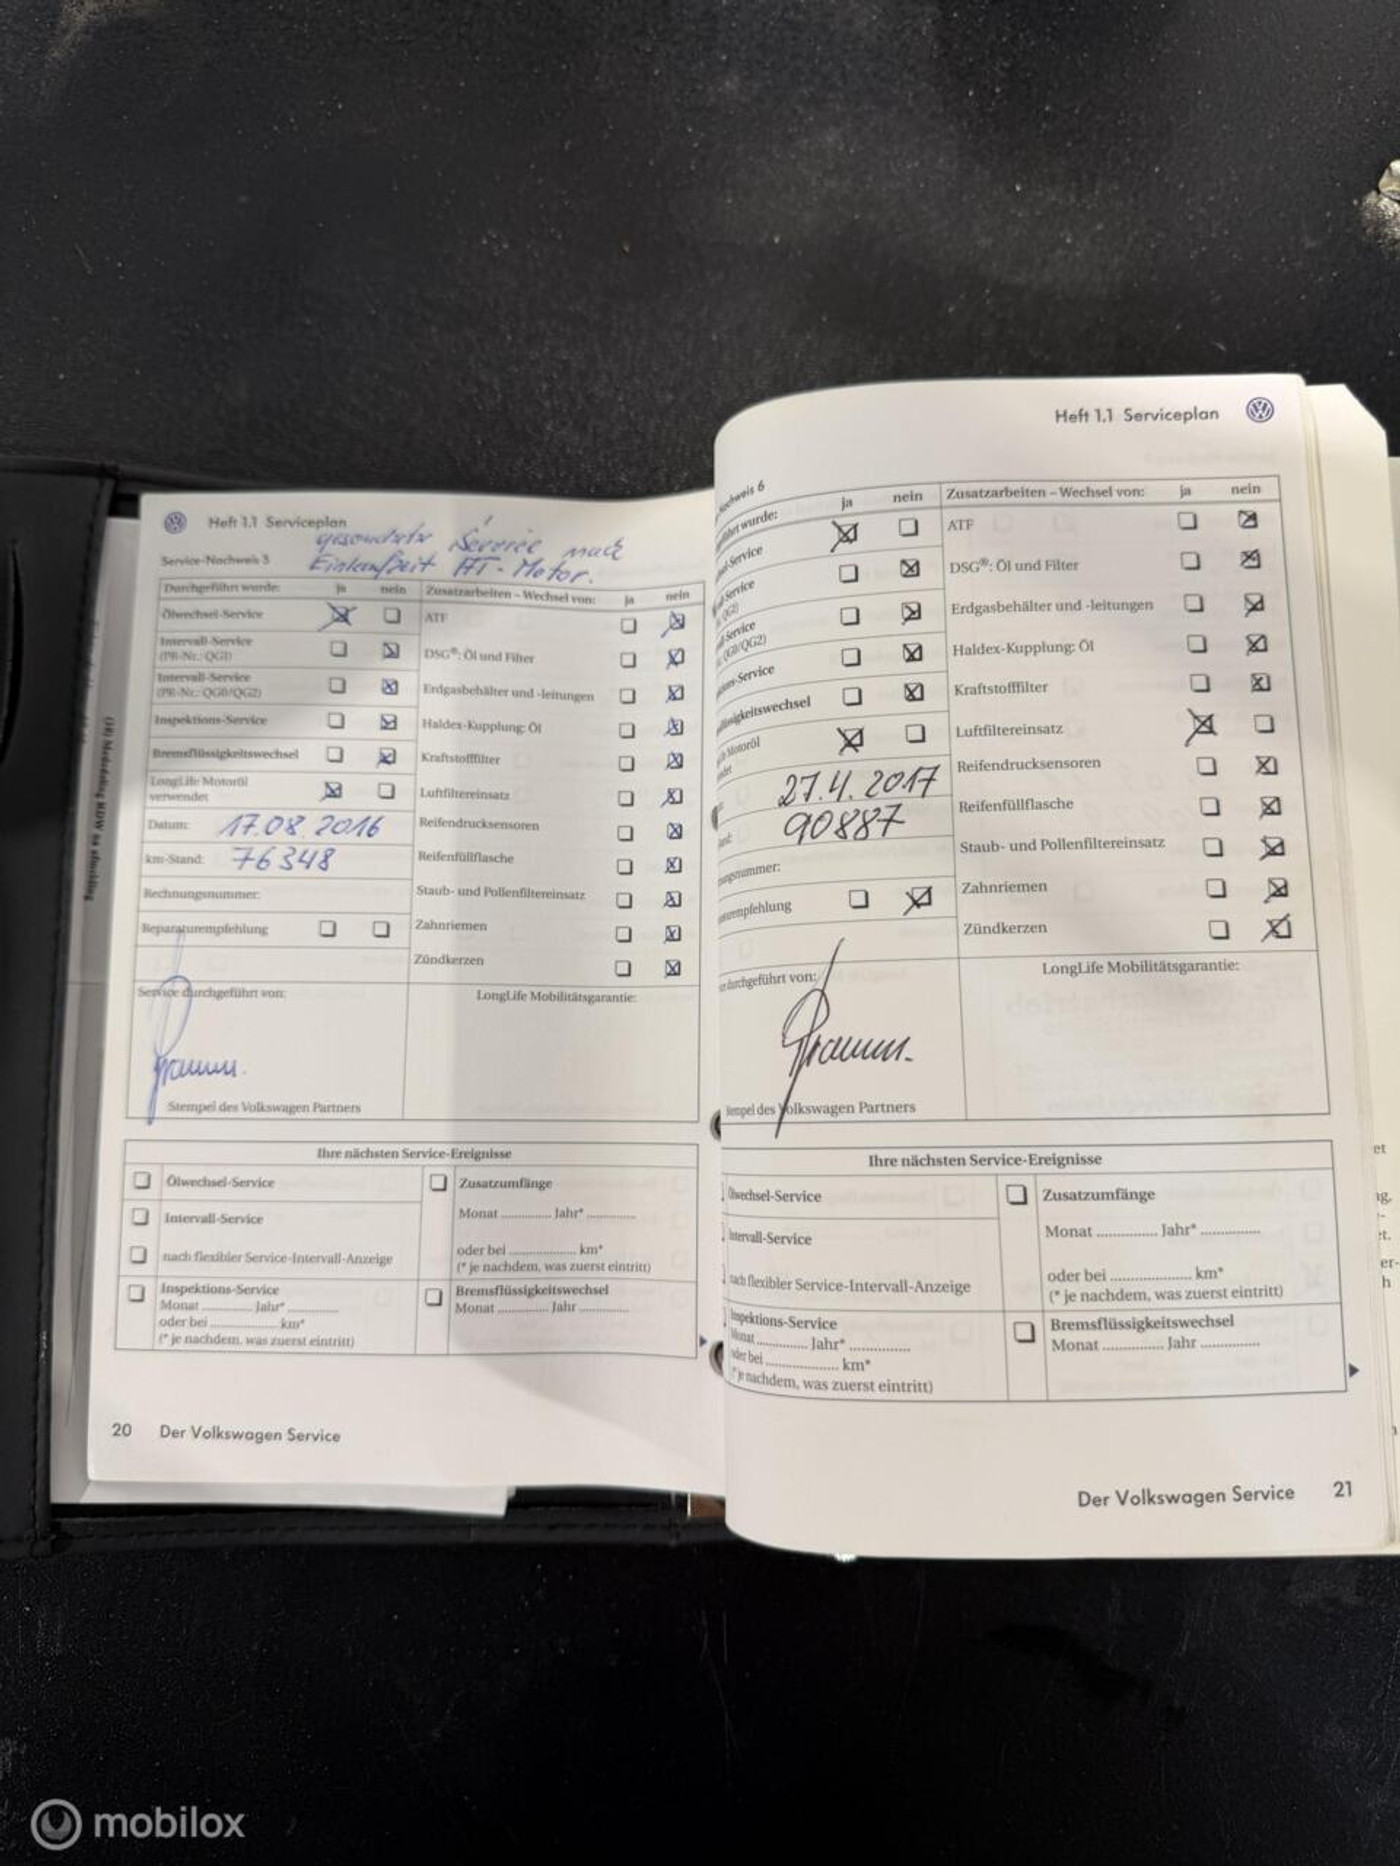 Heft 1.1 Serviceplan
gesonderter Service nach
Einlaufzeit AT-Motor.
Service-Nachweis 5
Durchgeführt wurde: ja nein Zusatzarbeiten – Wechsel von: ja nein
Ölwechsel-Service ATF
Intervall-Service
(PR-Nr.: QG1) DSG®: Öl und Filter
Intervall-Service
(PR-Nr.: QG0/QG2) Erdgasbehälter und -leitungen
Inspektions-Service Haldex-Kupplung: Öl
Bremsflüssigkeitswechsel Kraftstofffilter
LongLife Motoröl
verwendet Luftfiltereinsatz
Datum: 17.08.2016 Reifendrucksensoren
km-Stand: 76348 Reifenfüllflasche
Rechnungsnummer: Staub- und Pollenfiltereinsatz
Reparaturempfehlung Zahnriemen
Zündkerzen
Service durchgeführt von: LongLife Mobilitätsgarantie:
Stempel des Volkswagen Partners
Ihre nächsten Service-Ereignisse
Ölwechsel-Service Zusatzumfänge
Intervall-Service Monat .............. Jahr* ..............
nach flexibler Service-Intervall-Anzeige oder bei .................... km*
(* je nachdem, was zuerst eintritt)
Inspektions-Service Bremsflüssigkeitswechsel
Monat .............. Jahr* .............. Monat .............. Jahr ..............
oder bei .................... km*
(* je nachdem, was zuerst eintritt)
20 Der Volkswagen Service
Heft 1.1 Serviceplan
Nachweis 6
führt wurde: ja nein Zusatzarbeiten – Wechsel von: ja nein
sel-Service ATF
Service DSG®: Öl und Filter
QG2)
Service
QG0/QG2) Erdgasbehälter und -leitungen
ions-Service Haldex-Kupplung: Öl
lüssigkeitswechsel Kraftstofffilter
Motoröl Luftfiltereinsatz
det
27.4.2017 Reifendrucksensoren
and: 90887 Reifenfüllflasche
ungsnummer: Staub- und Pollenfiltereinsatz
urempfehlung Zahnriemen
Zündkerzen
durchgeführt von: LongLife Mobilitätsgarantie:
tempel des Volkswagen Partners
Ihre nächsten Service-Ereignisse
Ölwechsel-Service Zusatzumfänge
Intervall-Service Monat .............. Jahr* ..............
nach flexibler Service-Intervall-Anzeige oder bei .................... km*
(* je nachdem, was zuerst eintritt)
Inspektions-Service Bremsflüssigkeitswechsel
Monat .............. Jahr* .............. Monat .............. Jahr ..............
oder bei .................... km*
(* je nachdem, was zuerst eintritt)
Der Volkswagen Service 21
mobilox